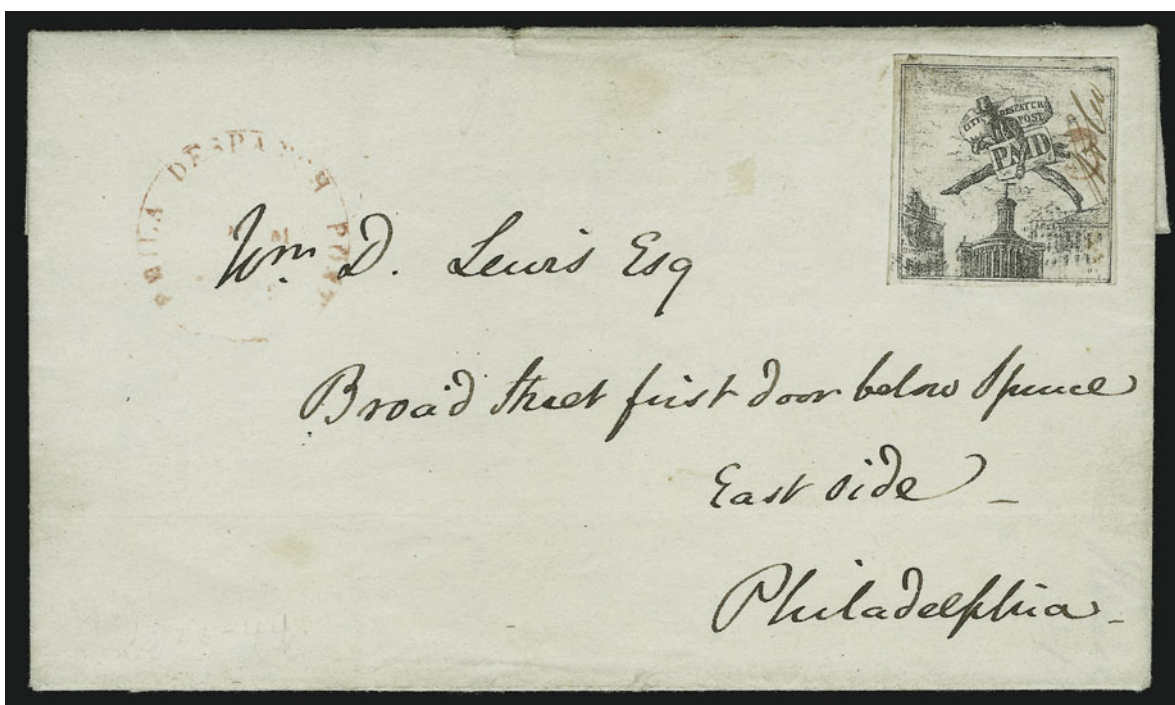 PHILA DESPATCH POST
CITY DESPATCH
POST
PAID
Wm. D. Lewis Esq
Broad Street first door below Spruce
East side
Philadelphia